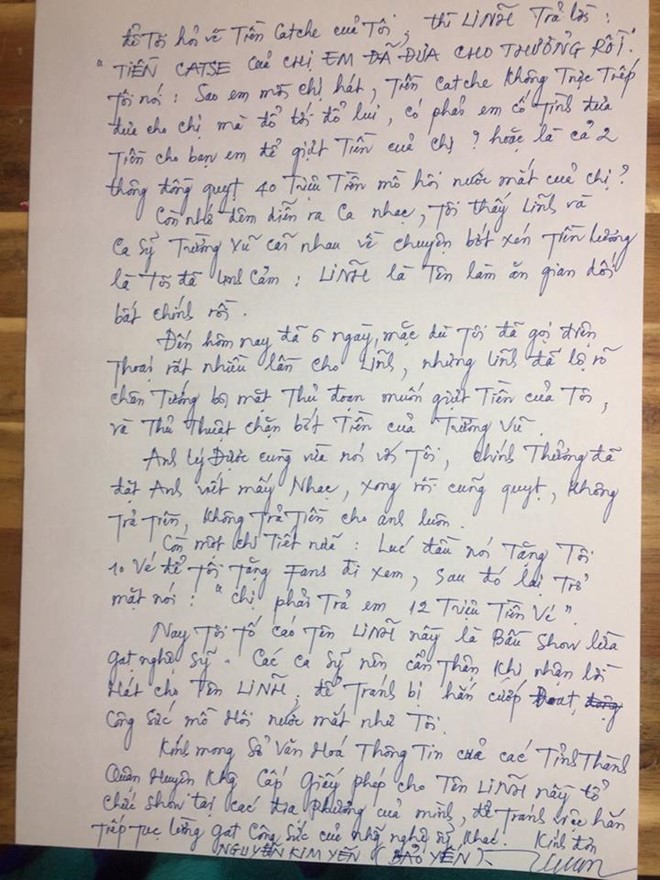 để Tôi hỏi về Tiền Catche của Tôi, thì LINH Trả lời:
"TIỀN CATSE CỦA CHỊ EM ĐÃ ĐƯA CHO THƯỞNG RỒI".
Tôi nói: Sao em mời chị hát, Tiền Catche không Trực Tiếp
đưa cho chị mà đổ tới đổ lui, có phải em cố Tình đưa
Tiền cho bạn em để giựt Tiền của chị? hoặc là cả 2
thông đồng quỵt 40 Triệu Tiền mồ hôi nước mắt của chị?
Còn nhớ đêm diễn ra Ca nhạc, Tôi thấy Linh và
Ca Sỹ Trường Vũ cãi nhau về chuyện bớt xén Tiền lương
là Tôi đã linh cảm: LINH là Tên làm ăn gian dối
bất chính rồi.
Đến hôm nay đã 6 ngày, mặc dù Tôi đã gọi điện
Thoại rất nhiều lần cho Linh, nhưng linh đã lộ rõ
chân Tướng bộ mặt Thủ đoạn muốn giựt Tiền của Tôi,
và Thủ Thuật chặn bớt Tiền của Trường Vũ.
Anh Lý Được cũng vừa nói với Tôi, chính Thưởng đã
đặt Anh viết mấy Nhạc, xong rồi cũng quỵt, không
Trả Tiền, không Trả Tiền cho anh luôn.
Còn một chi Tiết nữa: Lúc đầu nói Tặng Tôi
10 Vé để Tôi Tặng Fans đi xem, sau đó lại Trở
mặt nói: "chị phải Trả em 12 Triệu Tiền Vé".
Nay Tôi Tố cáo Tên LINH này là Bầu Show lừa
gạt nghệ sỹ. Các ca sỹ nên cẩn Thận khi nhận lời
Hát cho Tên LINH, để Tránh bị hắn cướp Đoạt,
Công Sức mồ Hôi nước mắt như Tôi.
Kính mong Sở Văn Hoá Thông Tin của các Tỉnh Thành
Quận Huyện Khg Cấp Giấy phép cho Tên LINH này tổ
chức show tại các địa phương của mình, để Tránh việc hắn
Tiếp Tục lường gạt Công Sức của nhg nghệ sỹ khác. Kính đơn
NGUYỄN KIM YẾN (BẢO YẾN)